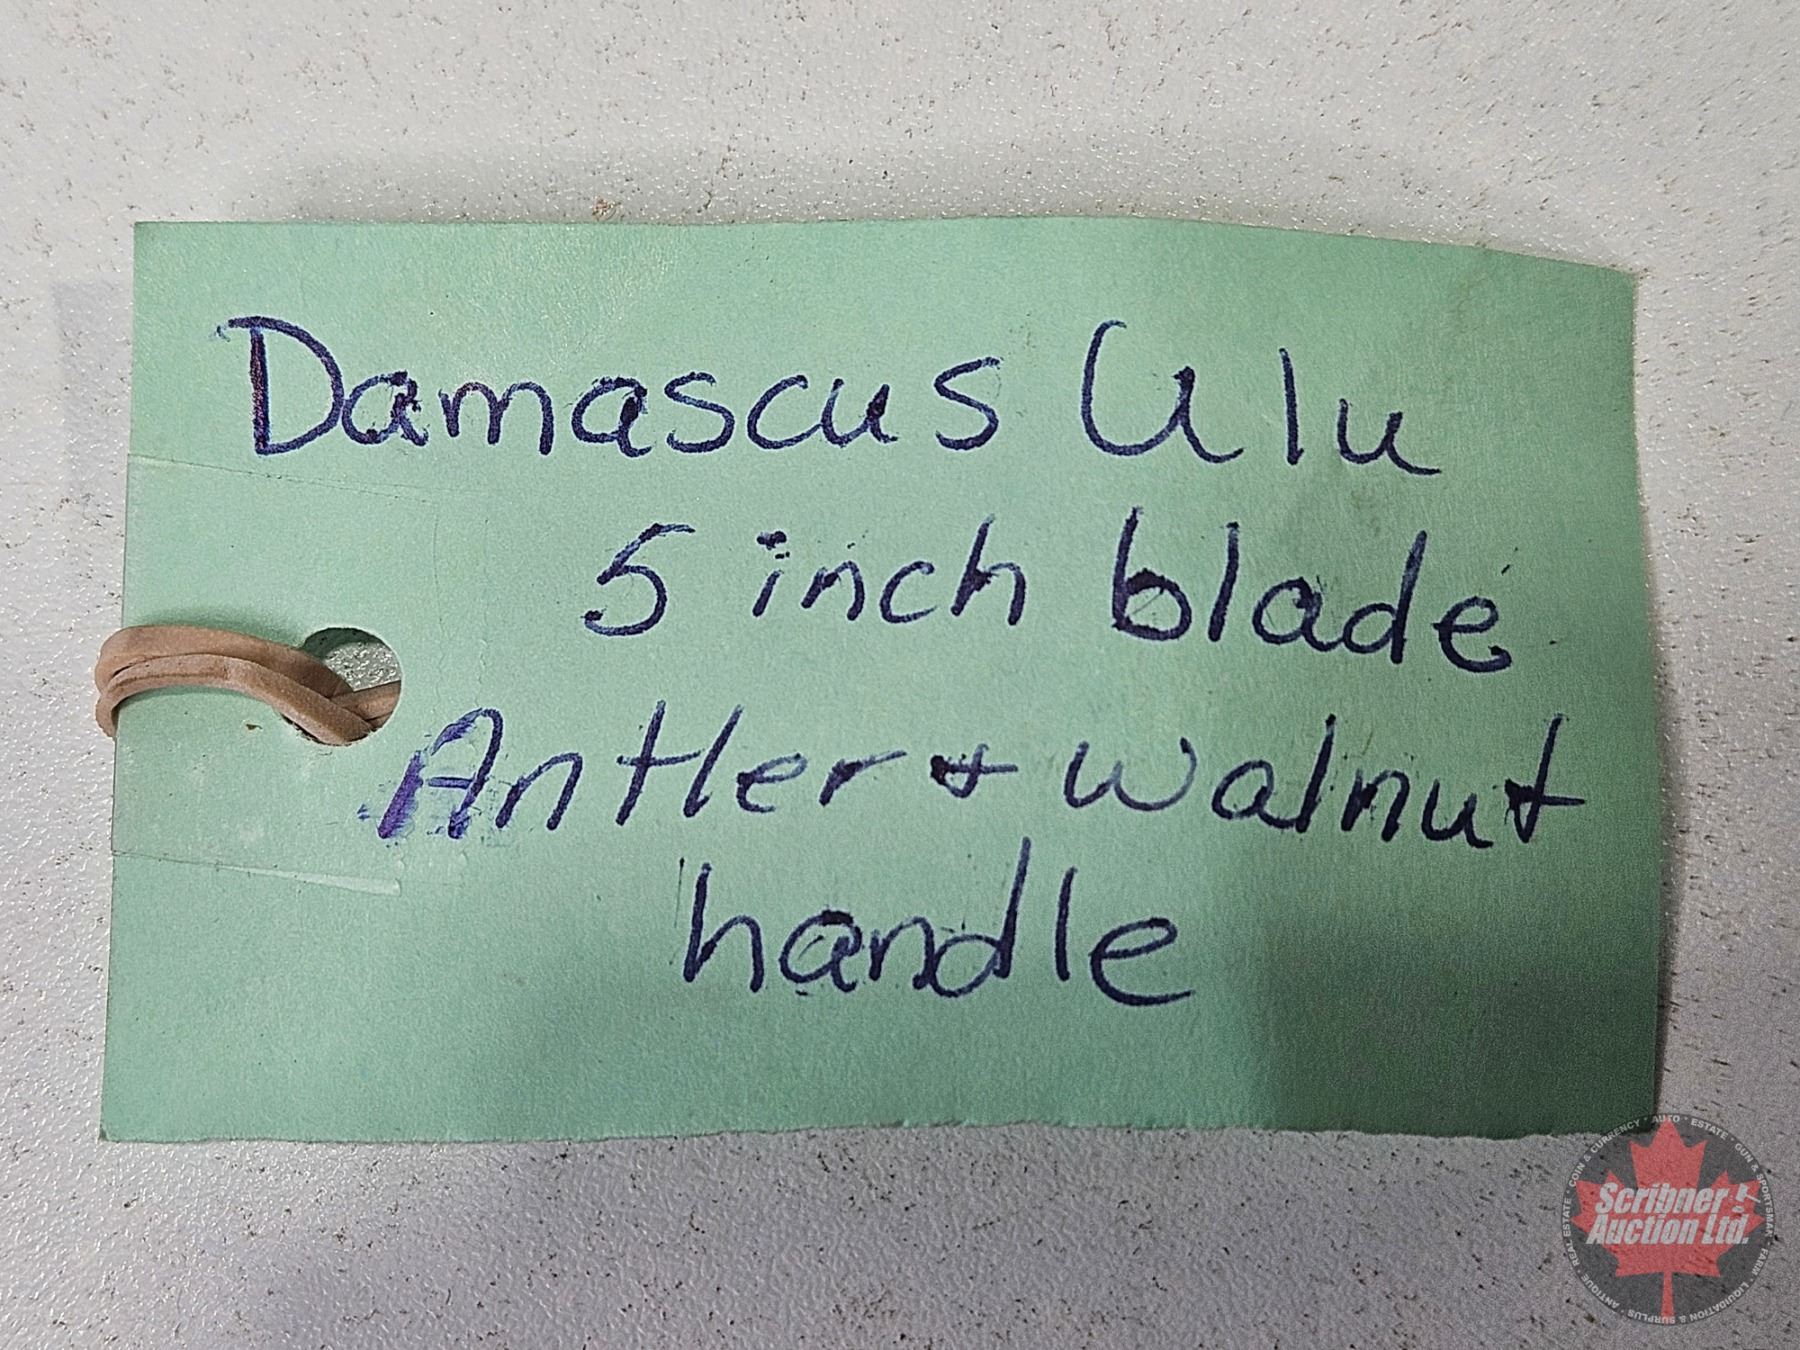 Damascus Ulu
5 inch blade
Antler & walnut
handle
Scribner
Auction Ltd.
COIN & CURRENCY · AUTO · ESTATE · GUN & SPORTSMAN · FARM · LIQUIDATION & SURPLUS · ANTIQUE · REAL ESTATE ·